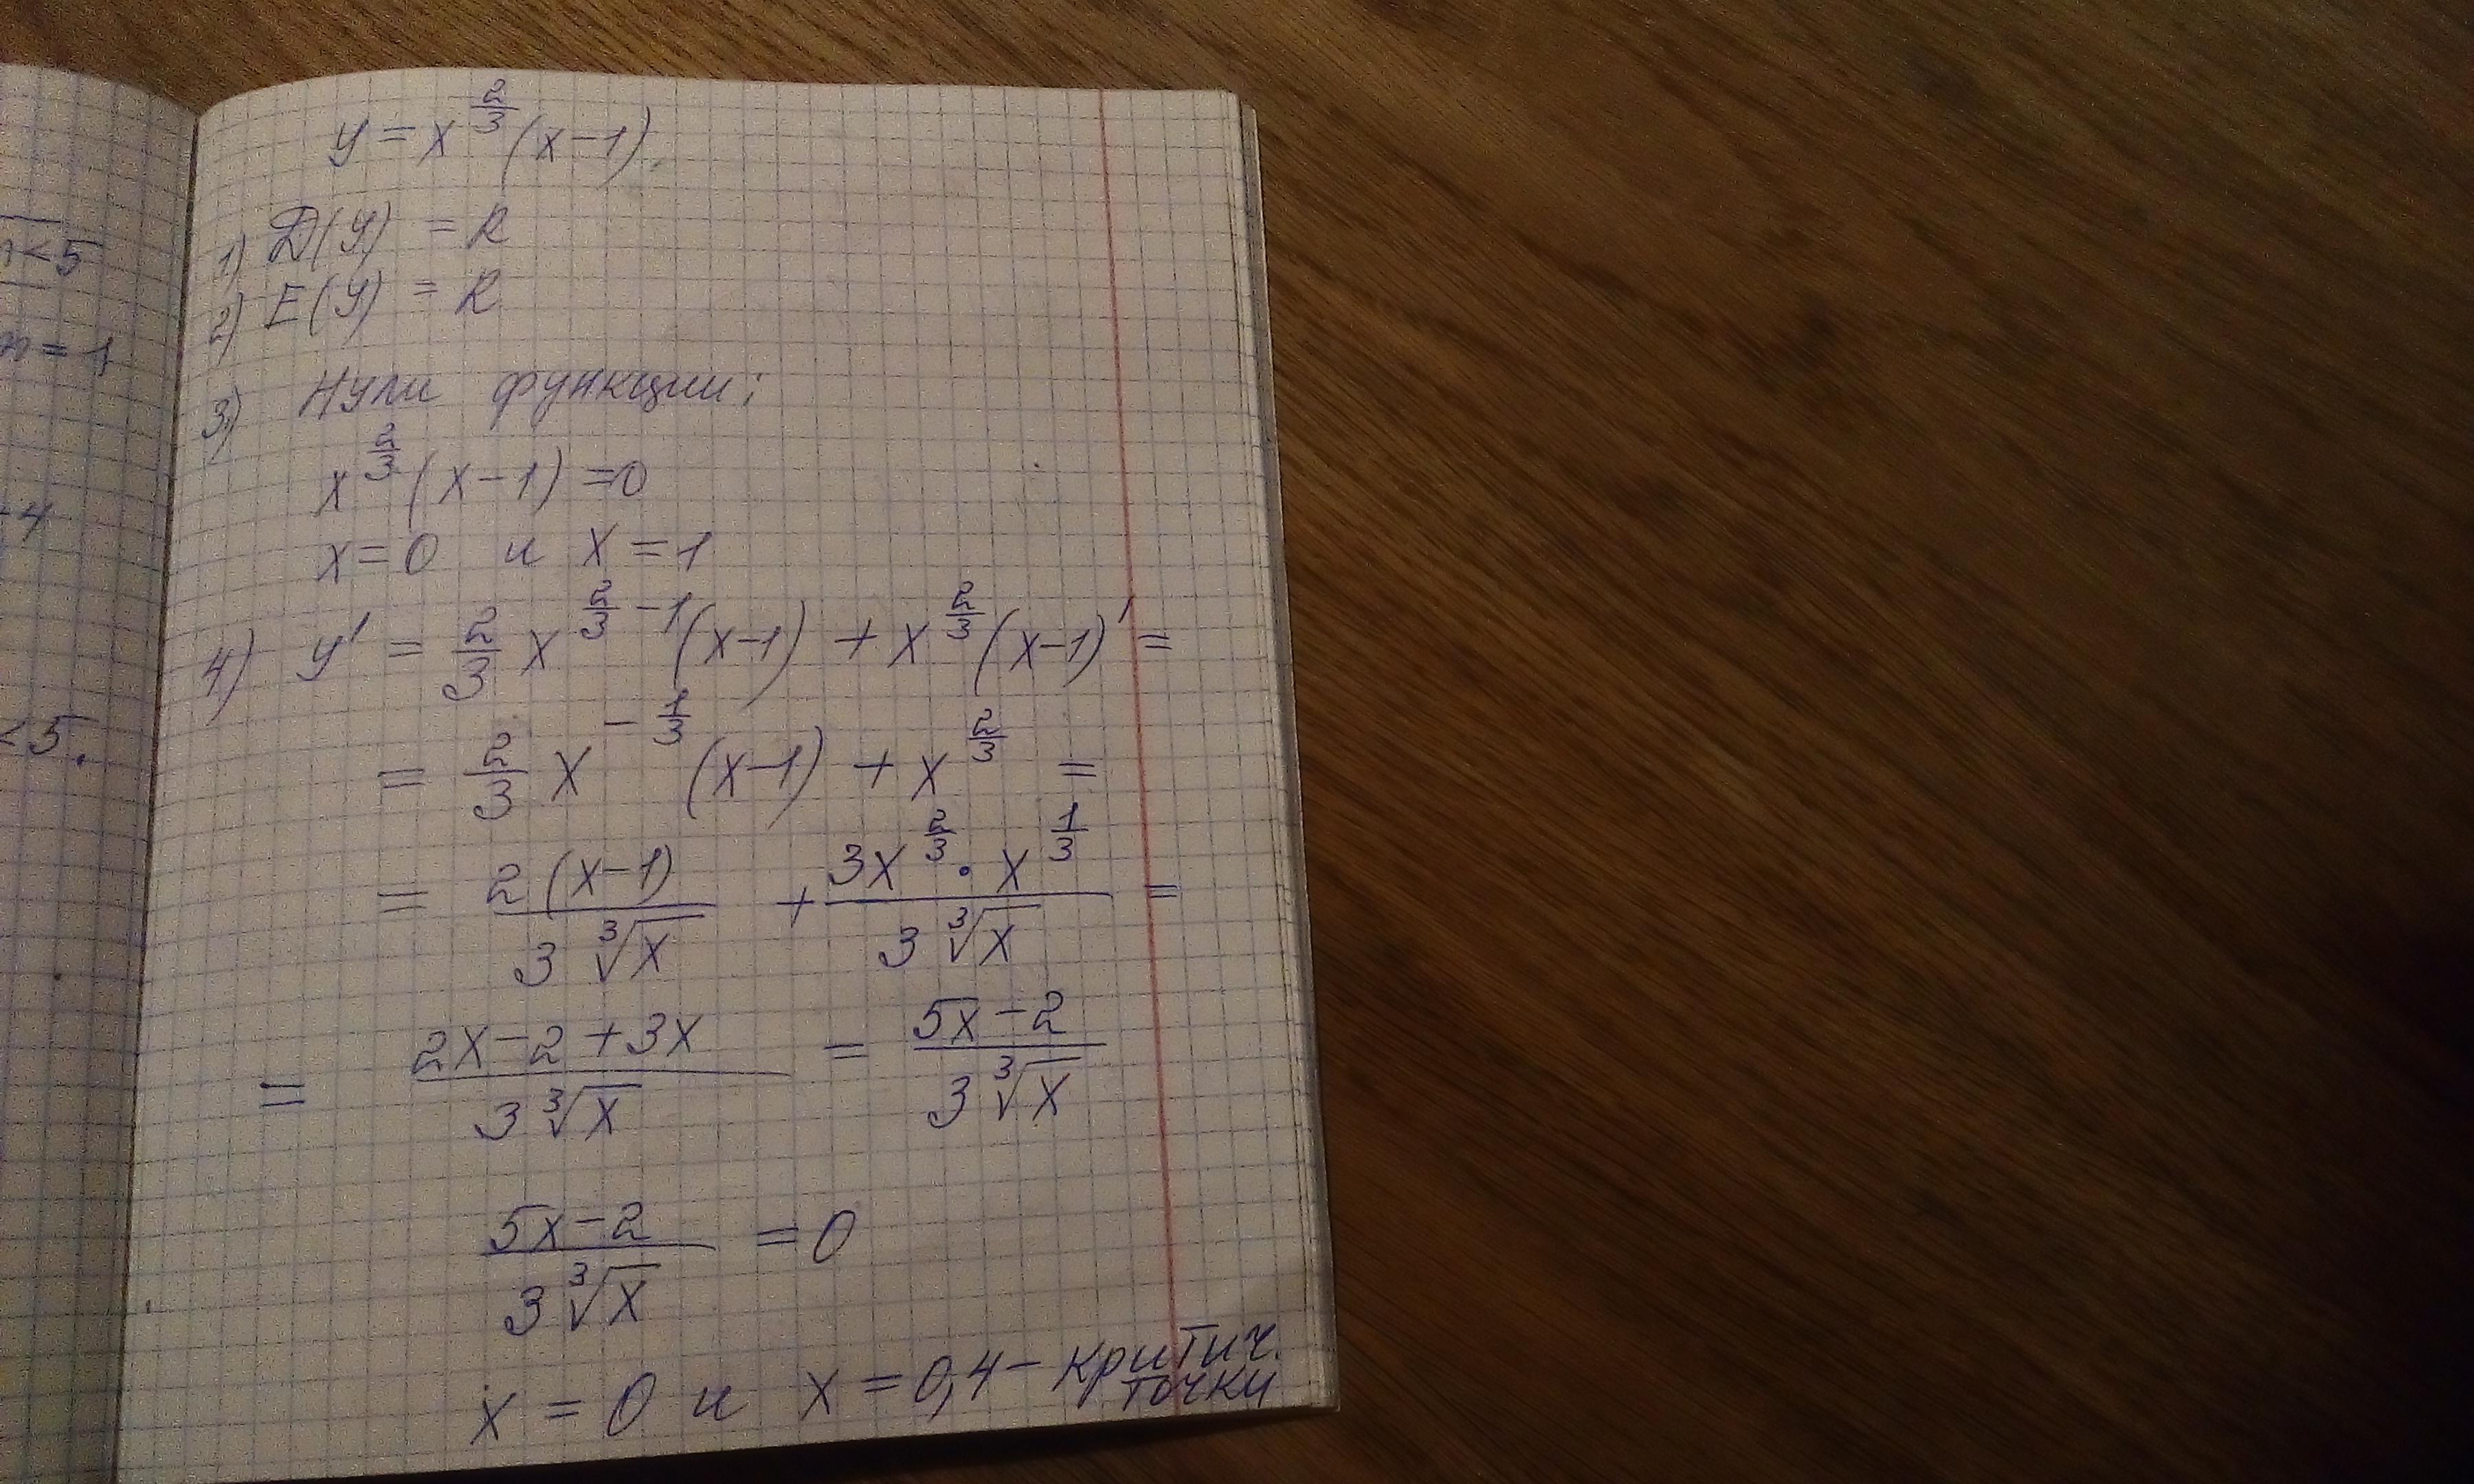 n<5
m=1
-4
<5.
y = x^(2/3) (x-1).
1) D(y) = R
2) E(y) = R
3) Нули функции:
x^(2/3) (x-1) = 0
x=0 и x=1
4) y' = 2/3 x^(2/3 -1) (x-1) + x^(2/3) (x-1)' =
= 2/3 x^(-1/3) (x-1) + x^(2/3) =
= 2(x-1)/(3∛x) + (3x^(2/3) · x^(1/3))/(3∛x) =
= (2x-2+3x)/(3∛x) = (5x-2)/(3∛x)
(5x-2)/(3∛x) = 0
x = 0 и x = 0,4 - критич.
точки